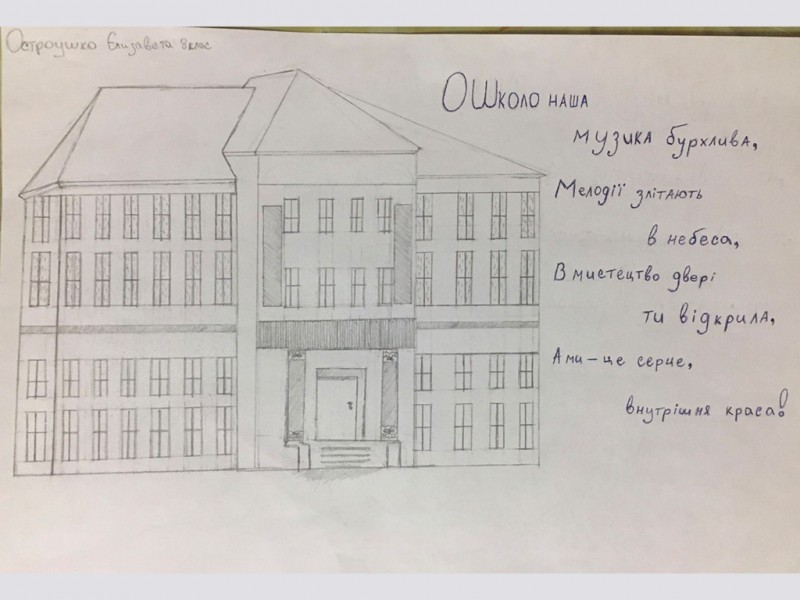 Остроушко Єлизавета 8 клас
О Школо наша
музика бурхлива,
Мелодії злітають
в небеса,
В мистецтво двері
ти відкрила,
А ми – це серце,
внутрішня краса!